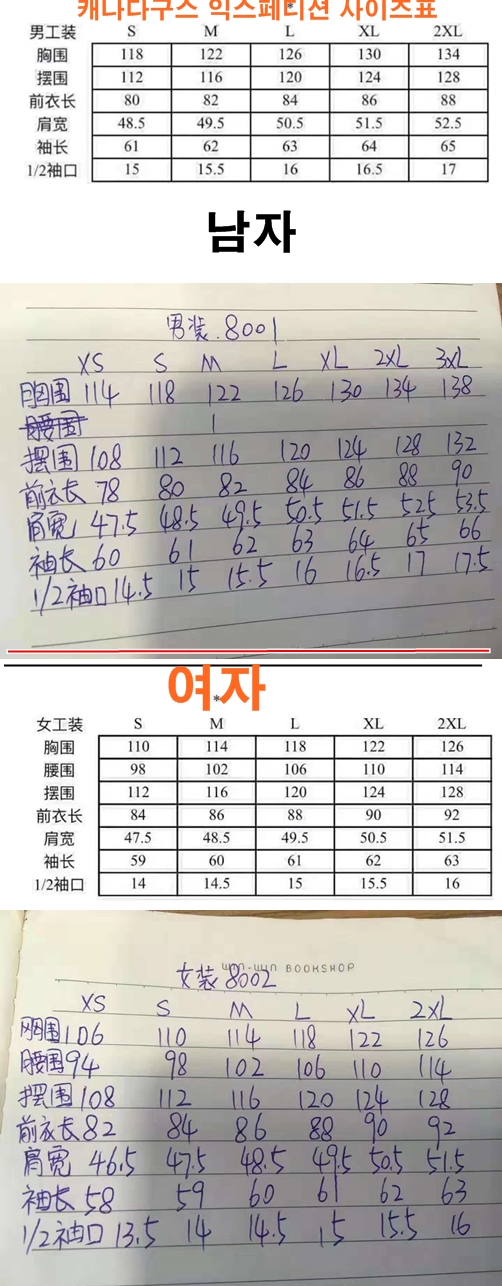 캐나다구스 익스페디션 사이즈표
男工装 S M L XL 2XL
胸围 118 122 126 130 134
摆围 112 116 120 124 128
前衣长 80 82 84 86 88
肩宽 48.5 49.5 50.5 51.5 52.5
袖长 61 62 63 64 65
1/2袖口 15 15.5 16 16.5 17
남자
男装.8001
XS S M L XL 2XL 3XL
胸围 114 118 122 126 130 134 138
摆围 108 112 116 120 124 128 132
前衣长 78 80 82 84 86 88 90
肩宽 47.5 48.5 49.5 50.5 51.5 52.5 53.5
袖长 60 61 62 63 64 65 66
1/2袖口 14.5 15 15.5 16 16.5 17 17.5
여자
女工装 S M L XL 2XL
胸围 110 114 118 122 126
腰围 98 102 106 110 114
摆围 112 116 120 124 128
前衣长 84 86 88 90 92
肩宽 47.5 48.5 49.5 50.5 51.5
袖长 59 60 61 62 63
1/2袖口 14 14.5 15 15.5 16
WIN-WIN BOOKSHOP
女装8002
XS S M L XL 2XL
胸围 106 110 114 118 122 126
腰围 94 98 102 106 110 114
摆围 108 112 116 120 124 128
前衣长 82 84 86 88 90 92
肩宽 46.5 47.5 48.5 49.5 50.5 51.5
袖长 58 59 60 61 62 63
1/2袖口 13.5 14 14.5 15 15.5 16